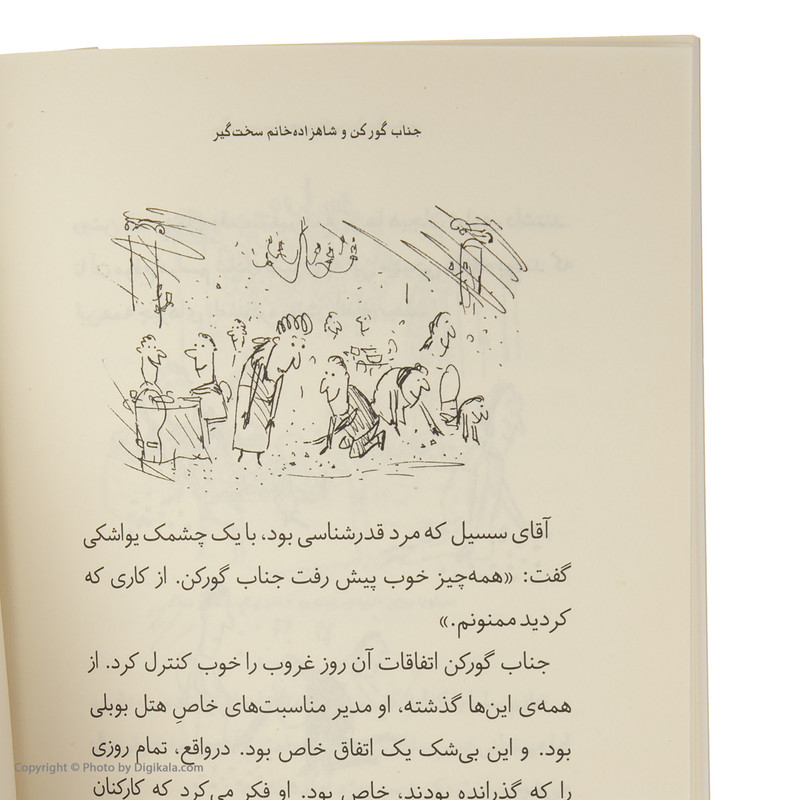 جناب گورکن و شاهزاده‌خانم سخت‌گیر
آقای سسیل که مرد قدرشناسی بود، با یک چشمک یواشکی
گفت: «همه‌چیز خوب پیش رفت جناب گورکن. از کاری که
کردید ممنونم.»
جناب گورکن اتفاقات آن روز غروب را خوب کنترل کرد. از
همه‌ی این‌ها گذشته، او مدیر مناسبت‌های خاصِ هتل بوبلی
بود. و این بی‌شک یک اتفاق خاص بود. درواقع، تمام روزی
را که گذرانده بودند، خاص بود. او فکر می‌کرد که کارکنان
Copyright © Photo by Digikala.com